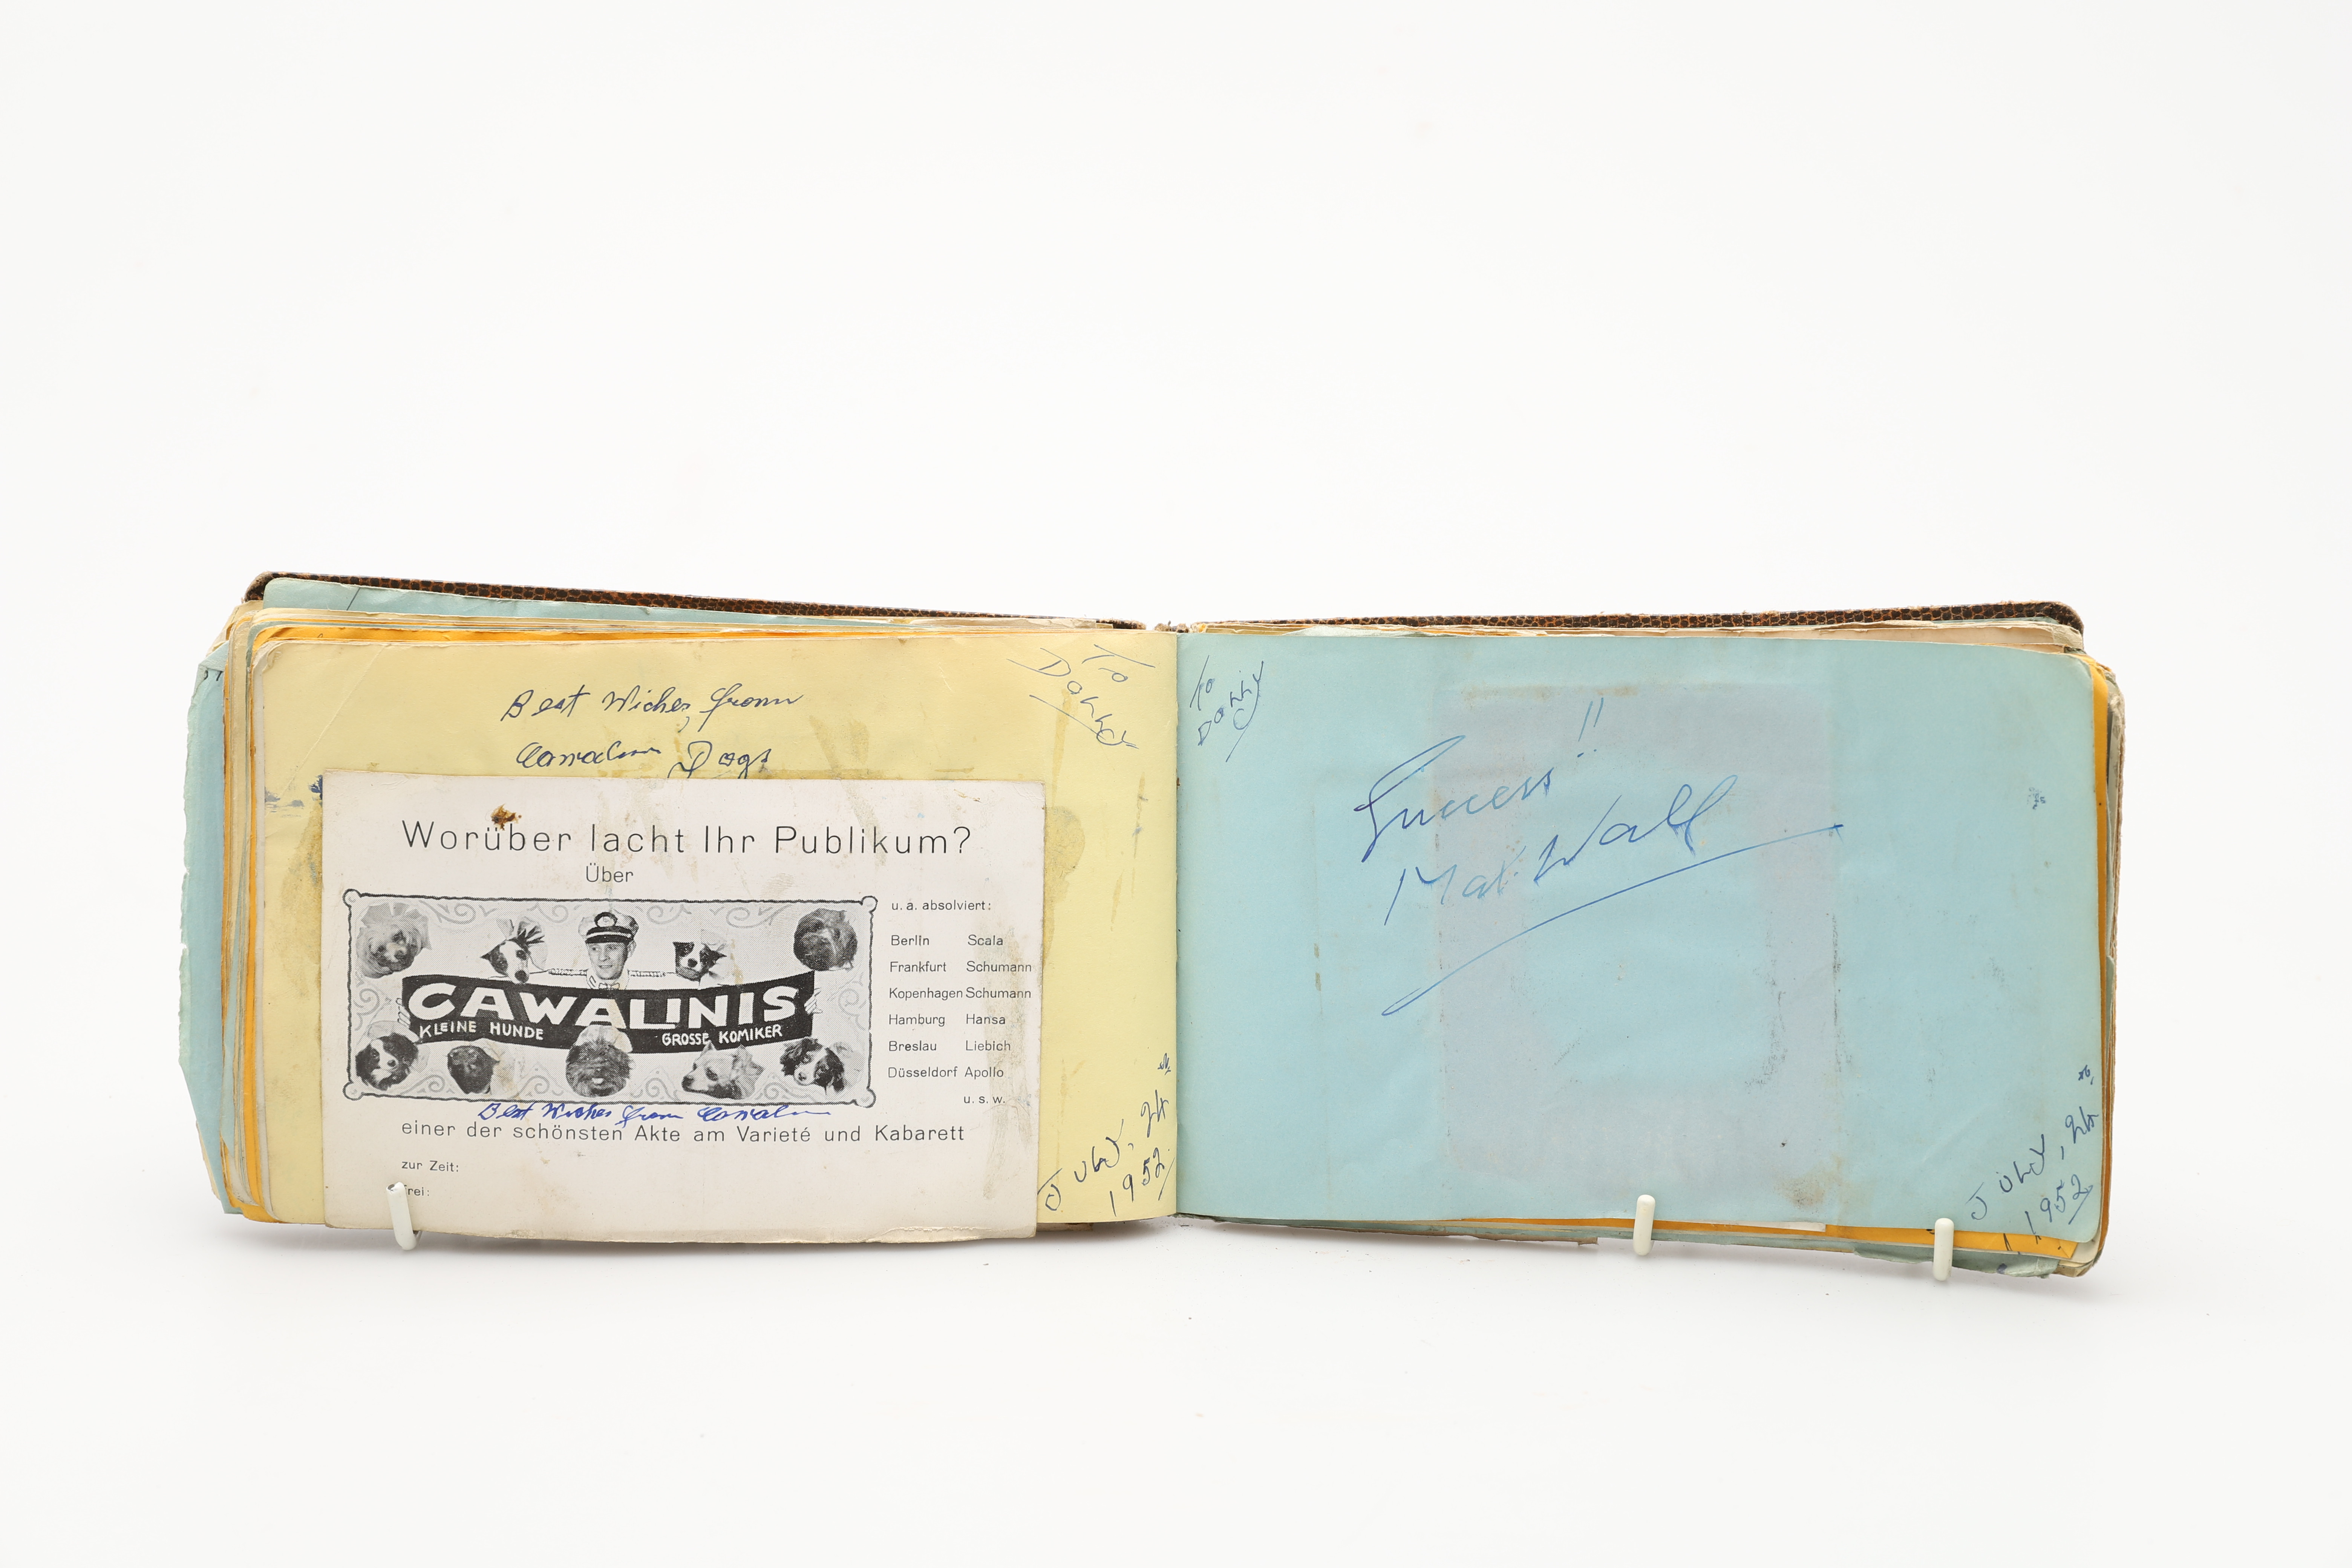 To
Donny
Best Wiches, from
Cawalini Dogs
Worüber lacht Ihr Publikum?
Über
CAWALINIS
KLEINE HUNDE GROSSE KOMIKER
u. a. absolviert:
Berlin Scala
Frankfurt Schumann
Kopenhagen Schumann
Hamburg Hansa
Breslau Liebich
Düsseldorf Apollo
u. s. w.
Best Wiches from Cawalini
einer der schönsten Akte am Varieté und Kabarett
zur Zeit:
frei:
July, 24
1952
To
Donny
Success!!
Max Wall
July, 24
1952